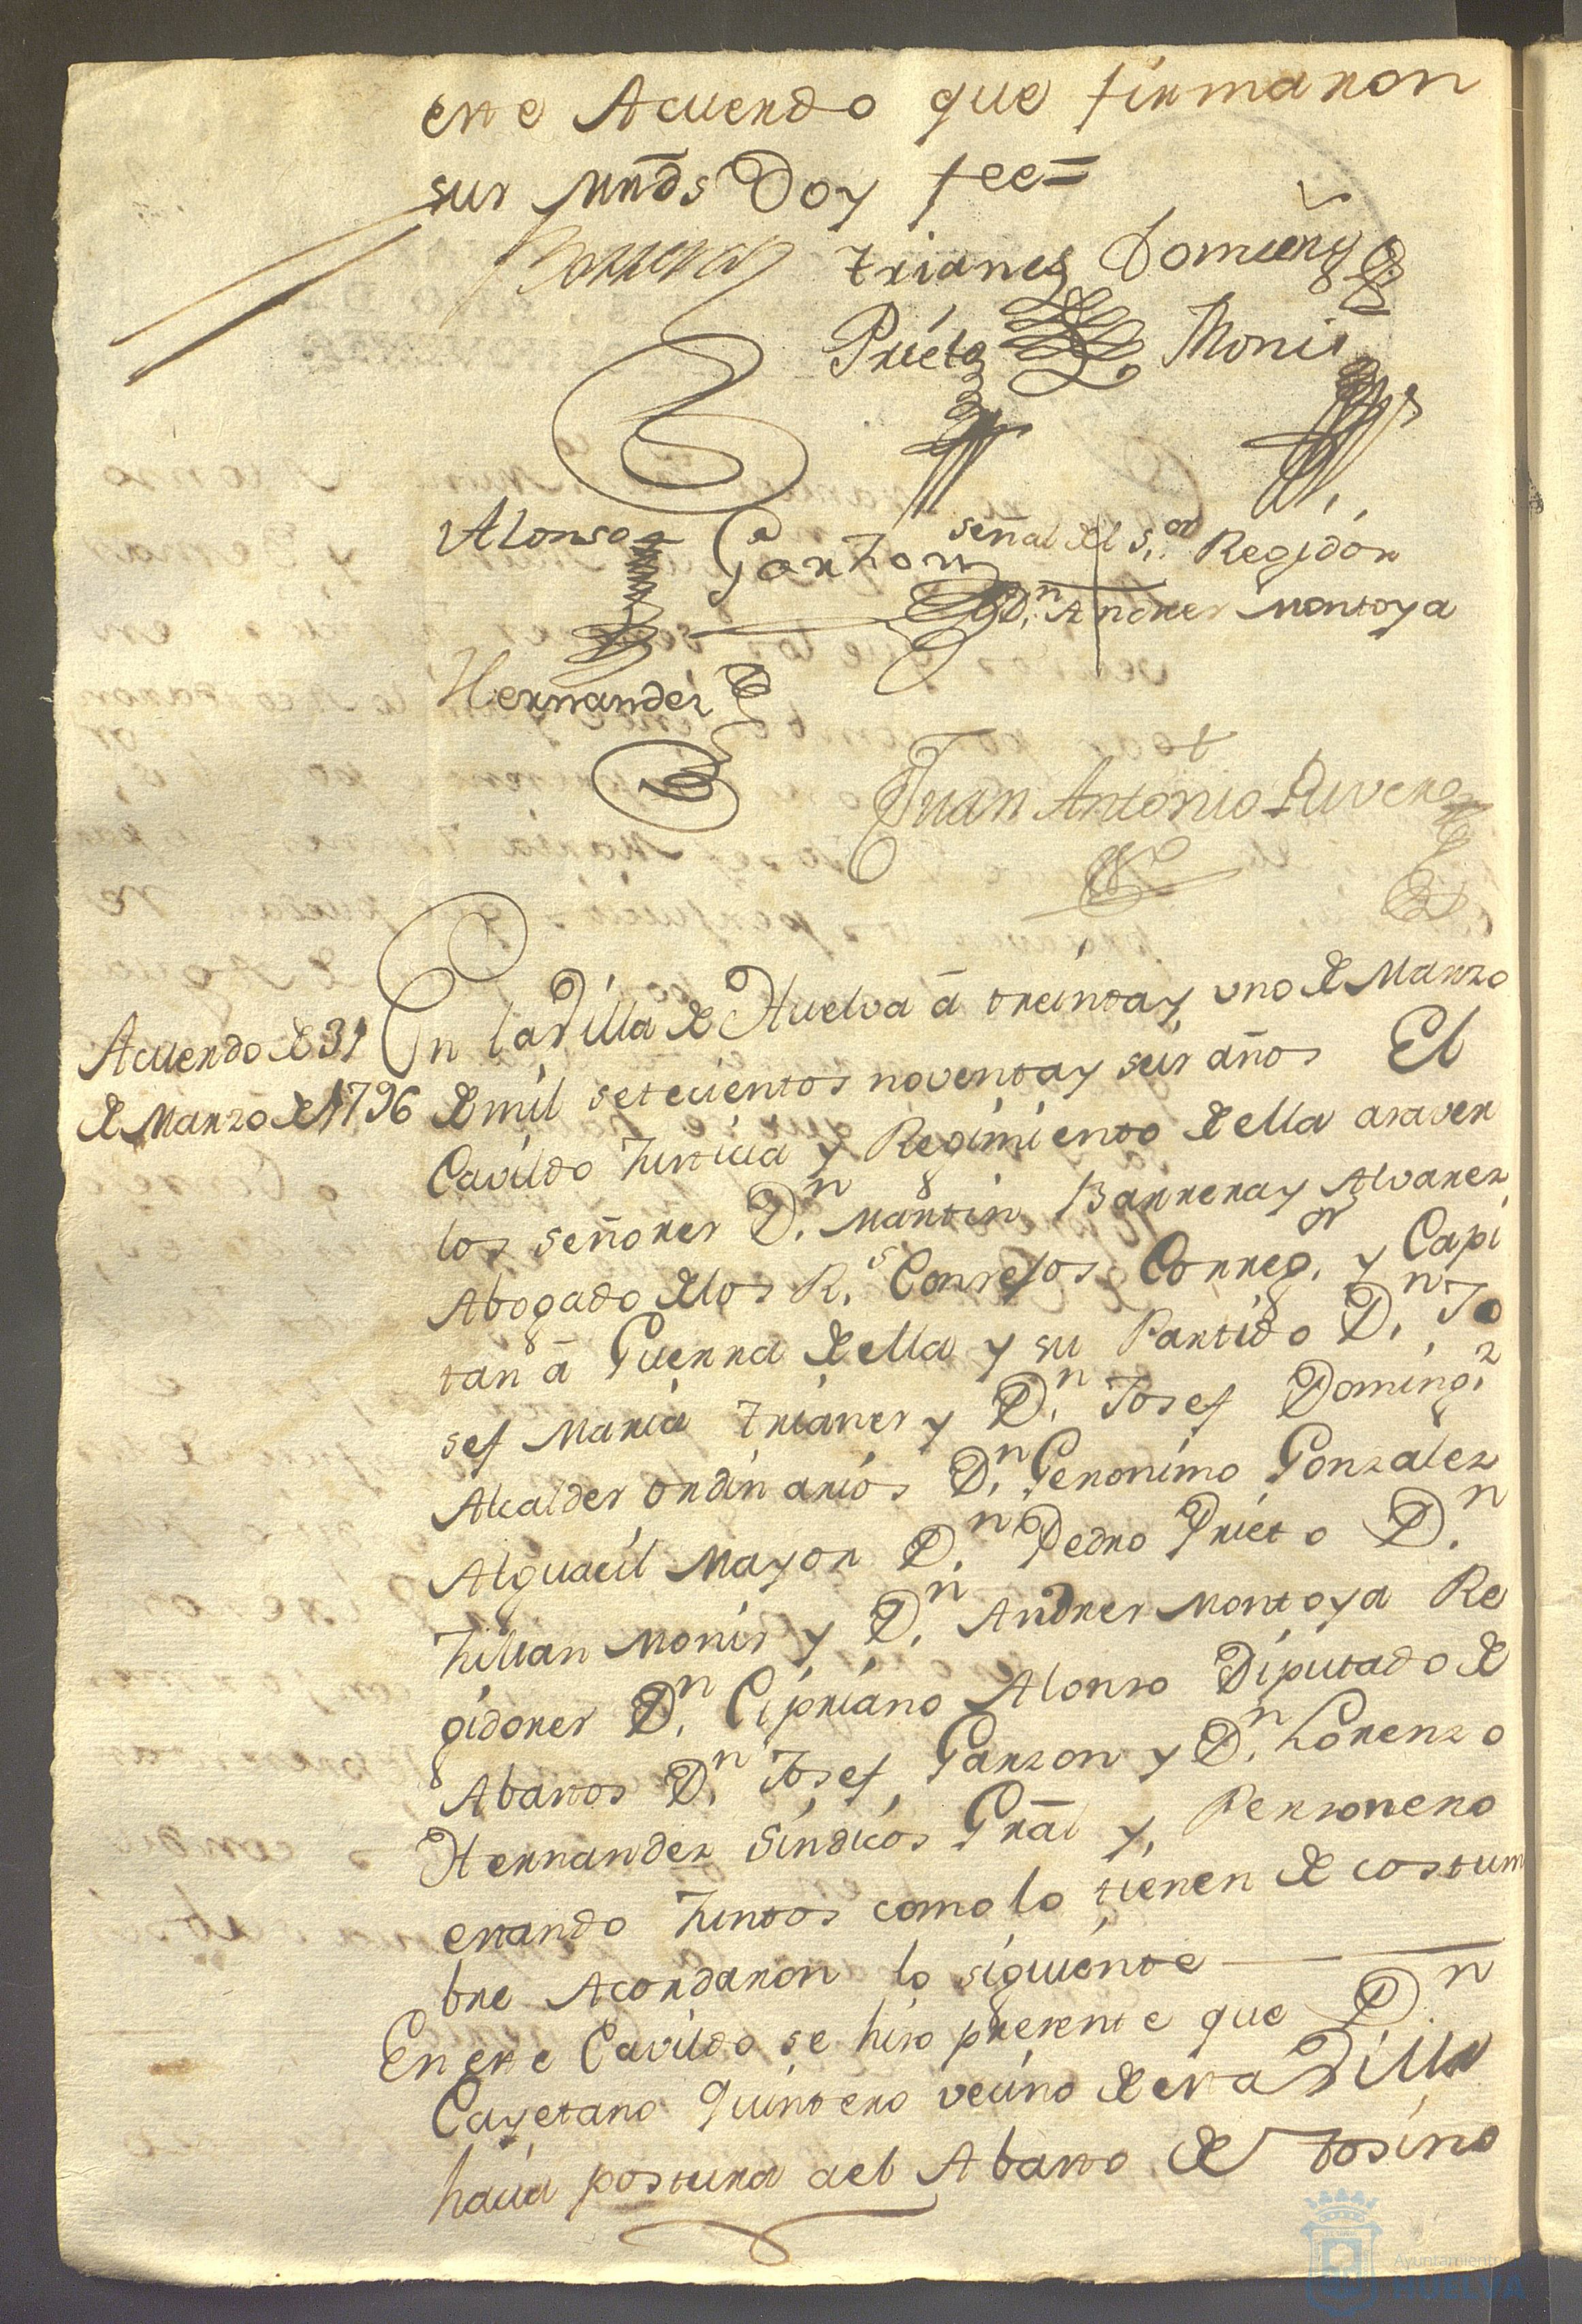 este Acuerdo que firmaron
sus mrds Doy fee=
Barrera Trianes Doming.z
Prieto Monis
Alonso Garzon señal del S.or Regidor
D.n Andres Montoya
Hernandez
Juan Antonio Rivera
Acuerdo de 31
de Marzo de 1796
En la Villa de Huelva â treinta y uno de Marzo
de mil setecientos noventa y seis años El
Cavildo Justicia y Regimiento de ella asaver
los señores D.n Martin Barrera y Alvarez
Abogado de los R.s Consejos Correg.or y Capi
tan â Guerra de ella y su Partido D.n Jo
sef Maria Trianes y D.n Josef Doming.z
Alcaldes ordinarios D.n Geronimo Gonzalez
Alguacil Mayor D.n Pedro Prieto D.n
Julian Monis y D.n Andres Montoya Re
gidores D.n Cipriano Alonso Diputado de
Abastos D.n Josef Garzon y D.n Lorenzo
Hernandez Sindicos Gral y Personero
estando Juntos como lo tienen de costum
bre Acordaron lo siguiente
En este Cavildo se hiso presente que D.n
Cayetano Quintero vecino de esta Villa
hacia postura ael Abasto de tosino
Ayuntamiento
HUELVA